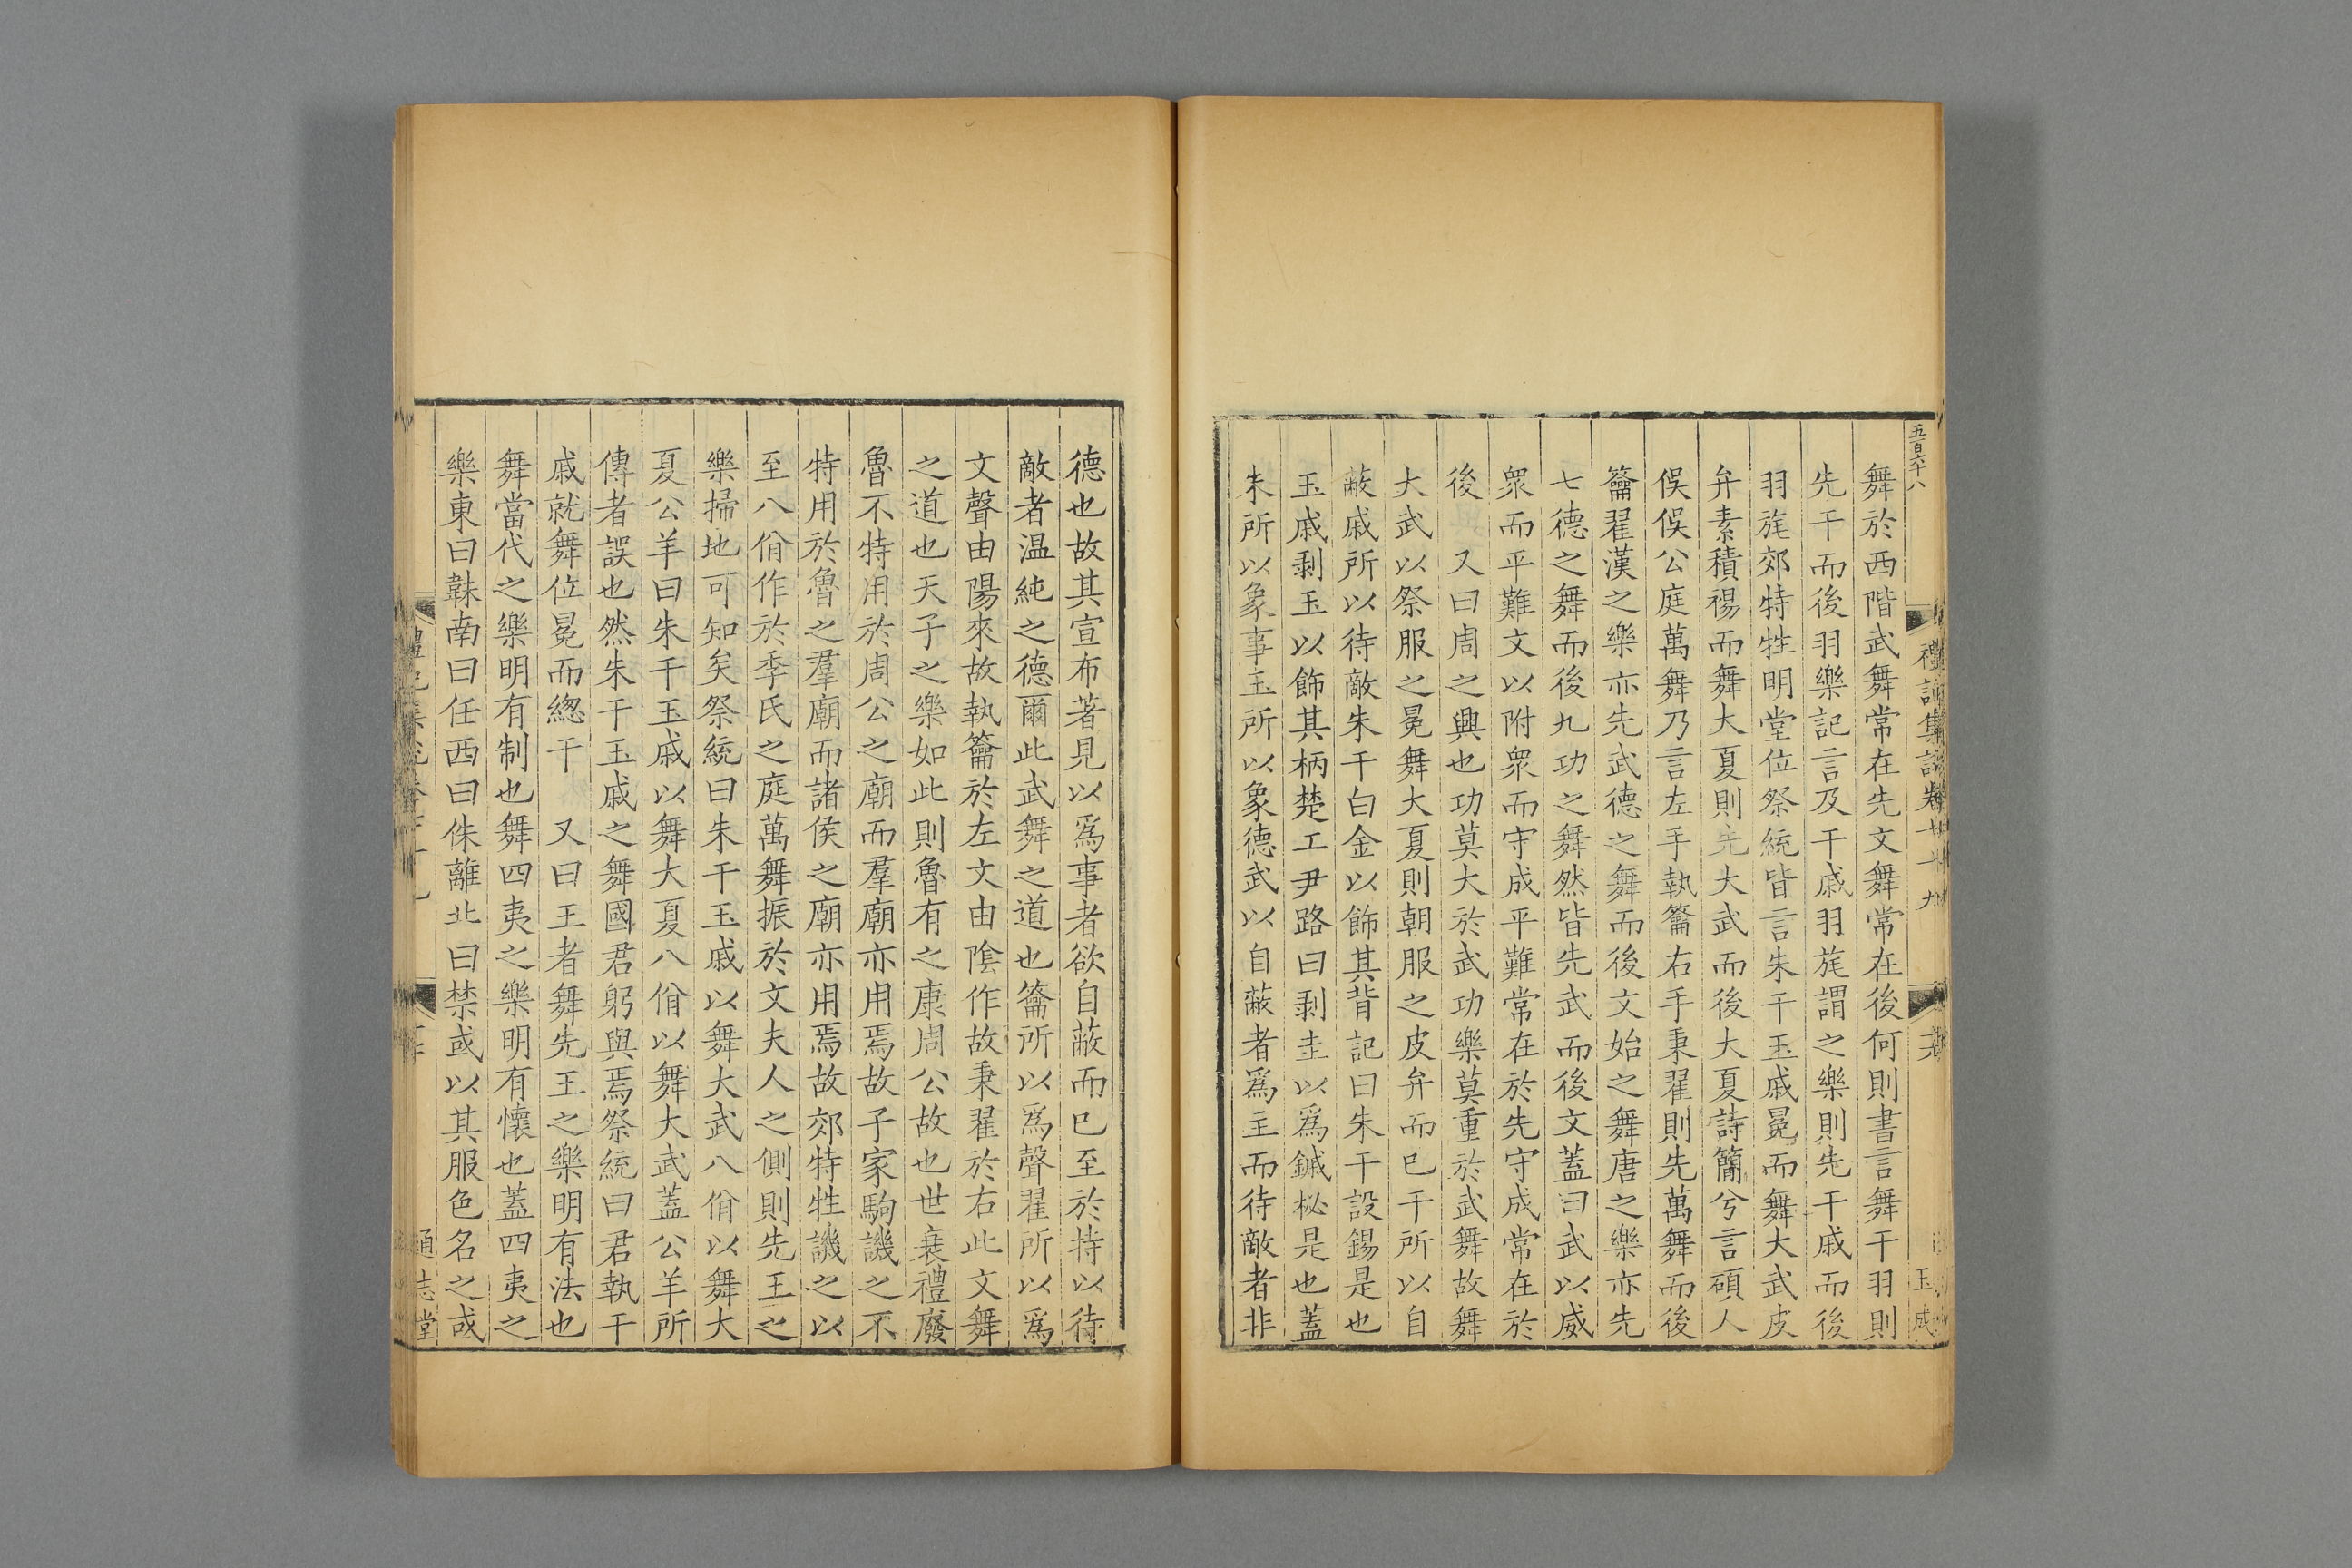 五百六十八
禮記集說卷七十九
玉成
舞於西階武舞常在先文舞常在後何則書言舞干羽則
先干而後羽樂記言及干戚羽旄謂之樂則先干戚而後
羽旄郊特牲明堂位祭統皆言朱干玉戚冕而舞大武皮
弁素積裼而舞大夏則先大武而後大夏詩簡兮言碩人
俁俁公庭萬舞乃言左手執籥右手秉翟則先萬舞而後
籥翟漢之樂亦先武德之舞而後文始之舞唐之樂亦先
七德之舞而後九功之舞然皆先武而後文蓋曰武以威
衆而平難文以附衆而守成平難常在於先守成常在於
後　又曰周之興也功莫大於武功樂莫重於武舞故舞
大武以祭服之冕舞大夏則朝服之皮弁而已干所以自
蔽戚所以待敵朱干白金以飾其背記曰朱干設錫是也
玉戚剥玉以飾其柄楚工尹路曰剥圭以爲鏚柲是也蓋
朱所以象事玉所以象德武以自蔽者爲主而待敵者非
德也故其宣布著見以爲事者欲自蔽而已至於持以待
敵者温純之德爾此武舞之道也籥所以爲聲翟所以爲
文聲由陽來故執籥於左文由陰作故秉翟於右此文舞
之道也天子之樂如此則魯有之康周公故也世衰禮廢
魯不特用於周公之廟而羣廟亦用焉故子家駒譏之不
特用於魯之羣廟而諸侯之廟亦用焉故郊特牲譏之以
至八佾作於季氏之庭萬舞振於文夫人之側則先王之
樂掃地可知矣祭統曰朱干玉戚以舞大武八佾以舞大
夏公羊曰朱干玉戚以舞大夏八佾以舞大武蓋公羊所
傳者誤也然朱干玉戚之舞國君躬與焉祭統曰君執干
戚就舞位冕而緫干　又曰王者舞先王之樂明有法也
舞當代之樂明有制也舞四夷之樂明有懷也蓋四夷之
樂東曰韎南曰任西曰侏離北曰禁或以其服色名之或
禮記集說卷七十九
通志堂